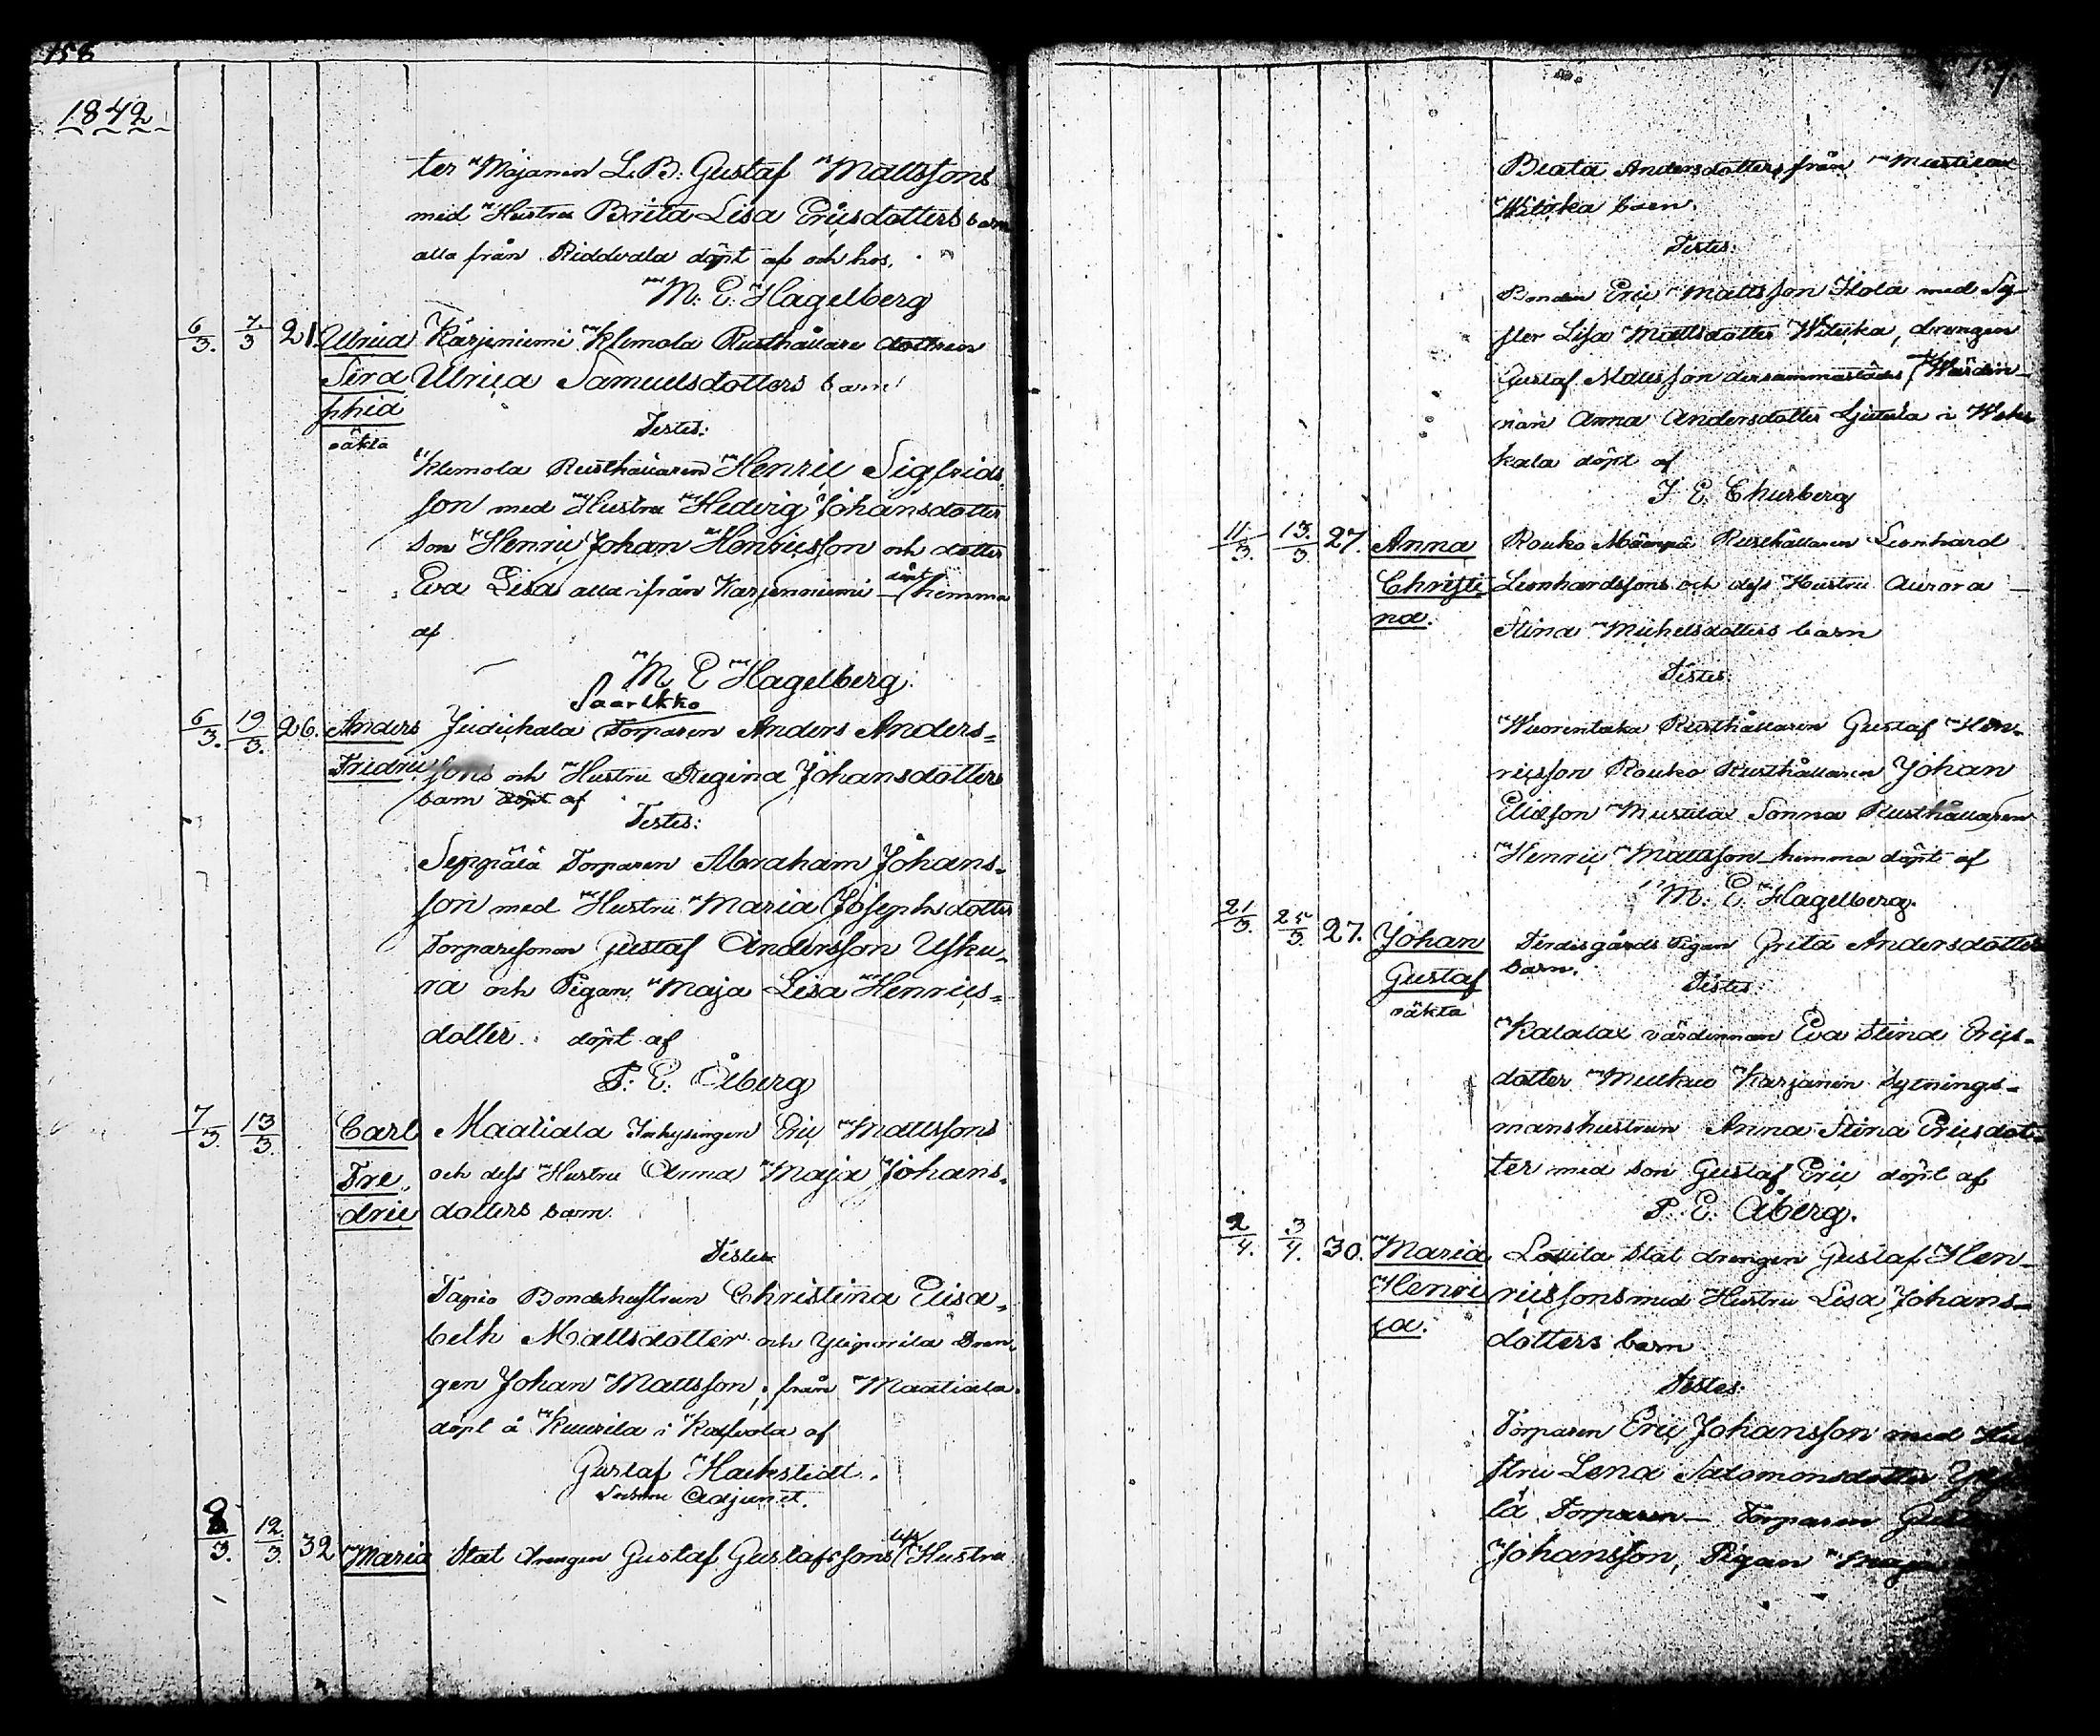 158
1842
ter Majanin L. B. Gustaf Mattssons
med Hustru Brita Lisa Ericsdotters barn
alla från Riddvala döpt af och hos.
M. E. Hagelberg
6/3. 7/3 21. Ulrica Karjeniemi Klemola Rusthållare dottren
Sera Ulrica Samuelsdotters barn
phia
oäkta
Testes:
Klemola Rusthållaren Henric Sigfrids
son med Hustru Hedvig Johansdotter
Son Henric Johan Henricsson och dotter
Eva Lisa alla ifrån Karjenniemi döpt hemma
af
M E Hagelberg.
Saarikko
6/3. 19/3. 26. Anders Judickala Torparen Anders Anders=
Fridric sons och Hustru Regina Johansdotters
barn döpt af
Testes:
Seppälä Torparen Abraham Johans=
son med Hustru Maria Josephsdotter
Torparesonen Gustaf Andersson Usku=
ra och Pigan Maja Lisa Henrics=
dotter. döpt af
F. E. Åberg
7/3. 13/3. Carl Maatiala Inhysingen Eric Mattssons
Fre och dess Hustru Anna Maja Johans=
dric dotters barn.
Testes
Tapio Bondehustrun Christina Elisa=
beth Mattsdotter och Drän=
gen Johan Mattsson, från Maatiala
döpt å Kuurila i Kalvola af
Gustaf Hackstedt.
Adjunct.
8/3. 12/3. 32 Maria Stat drengen Gustaf Gustafssons Hustru
Beata Andersdotters från Mustila
Wituka barn.
Testes:
Bonden Eric Mattsson Hola med Sy=
ster Lisa Mattsdotter Wituka, drengen
Gustaf Mattsson dersammastädes Wärdin=
nan Anna Andersdotter i
kala döpt af
J E. Churberg
11/3. 13./3. 27. Anna Rouko Mäenpä Rusthållaren Leonhard
Christi Leonhardssons och dess Hustru Aurora
na. Stina Michelsdotters barn
Testes:
Wuorentaka Rusthållaren Gustaf Hen=
ricsson Rouko Rusthållaren Johan
Eliasson Mustila Sonna Rusthållaren
Henric Mattsson hemma döpt af
M. E. Hagelberg.
21/3. 25/3. 27. Johan Pigan Greta Andersdotters
Gustaf barn.
oäkta
Testes:
Katalax värdinnan Eva Stina Erics=
dotter Karjanin Sytnings=
manshustrun Anna Stina Ericsdot=
ter med Son Gustaf Eric döpt af
F. E. Åberg.
2/4. 3/4. 30. Maria Lautila Stat drengen Gustaf Hen=
Henri ricssons med Hustru Lisa Johans=
ca. dotters barn
Testes:
Torparen Eric Johansson med Hu
stru Lena Salomonsdotter
lä Torparen Torparen
Johansson, Pigan Maja